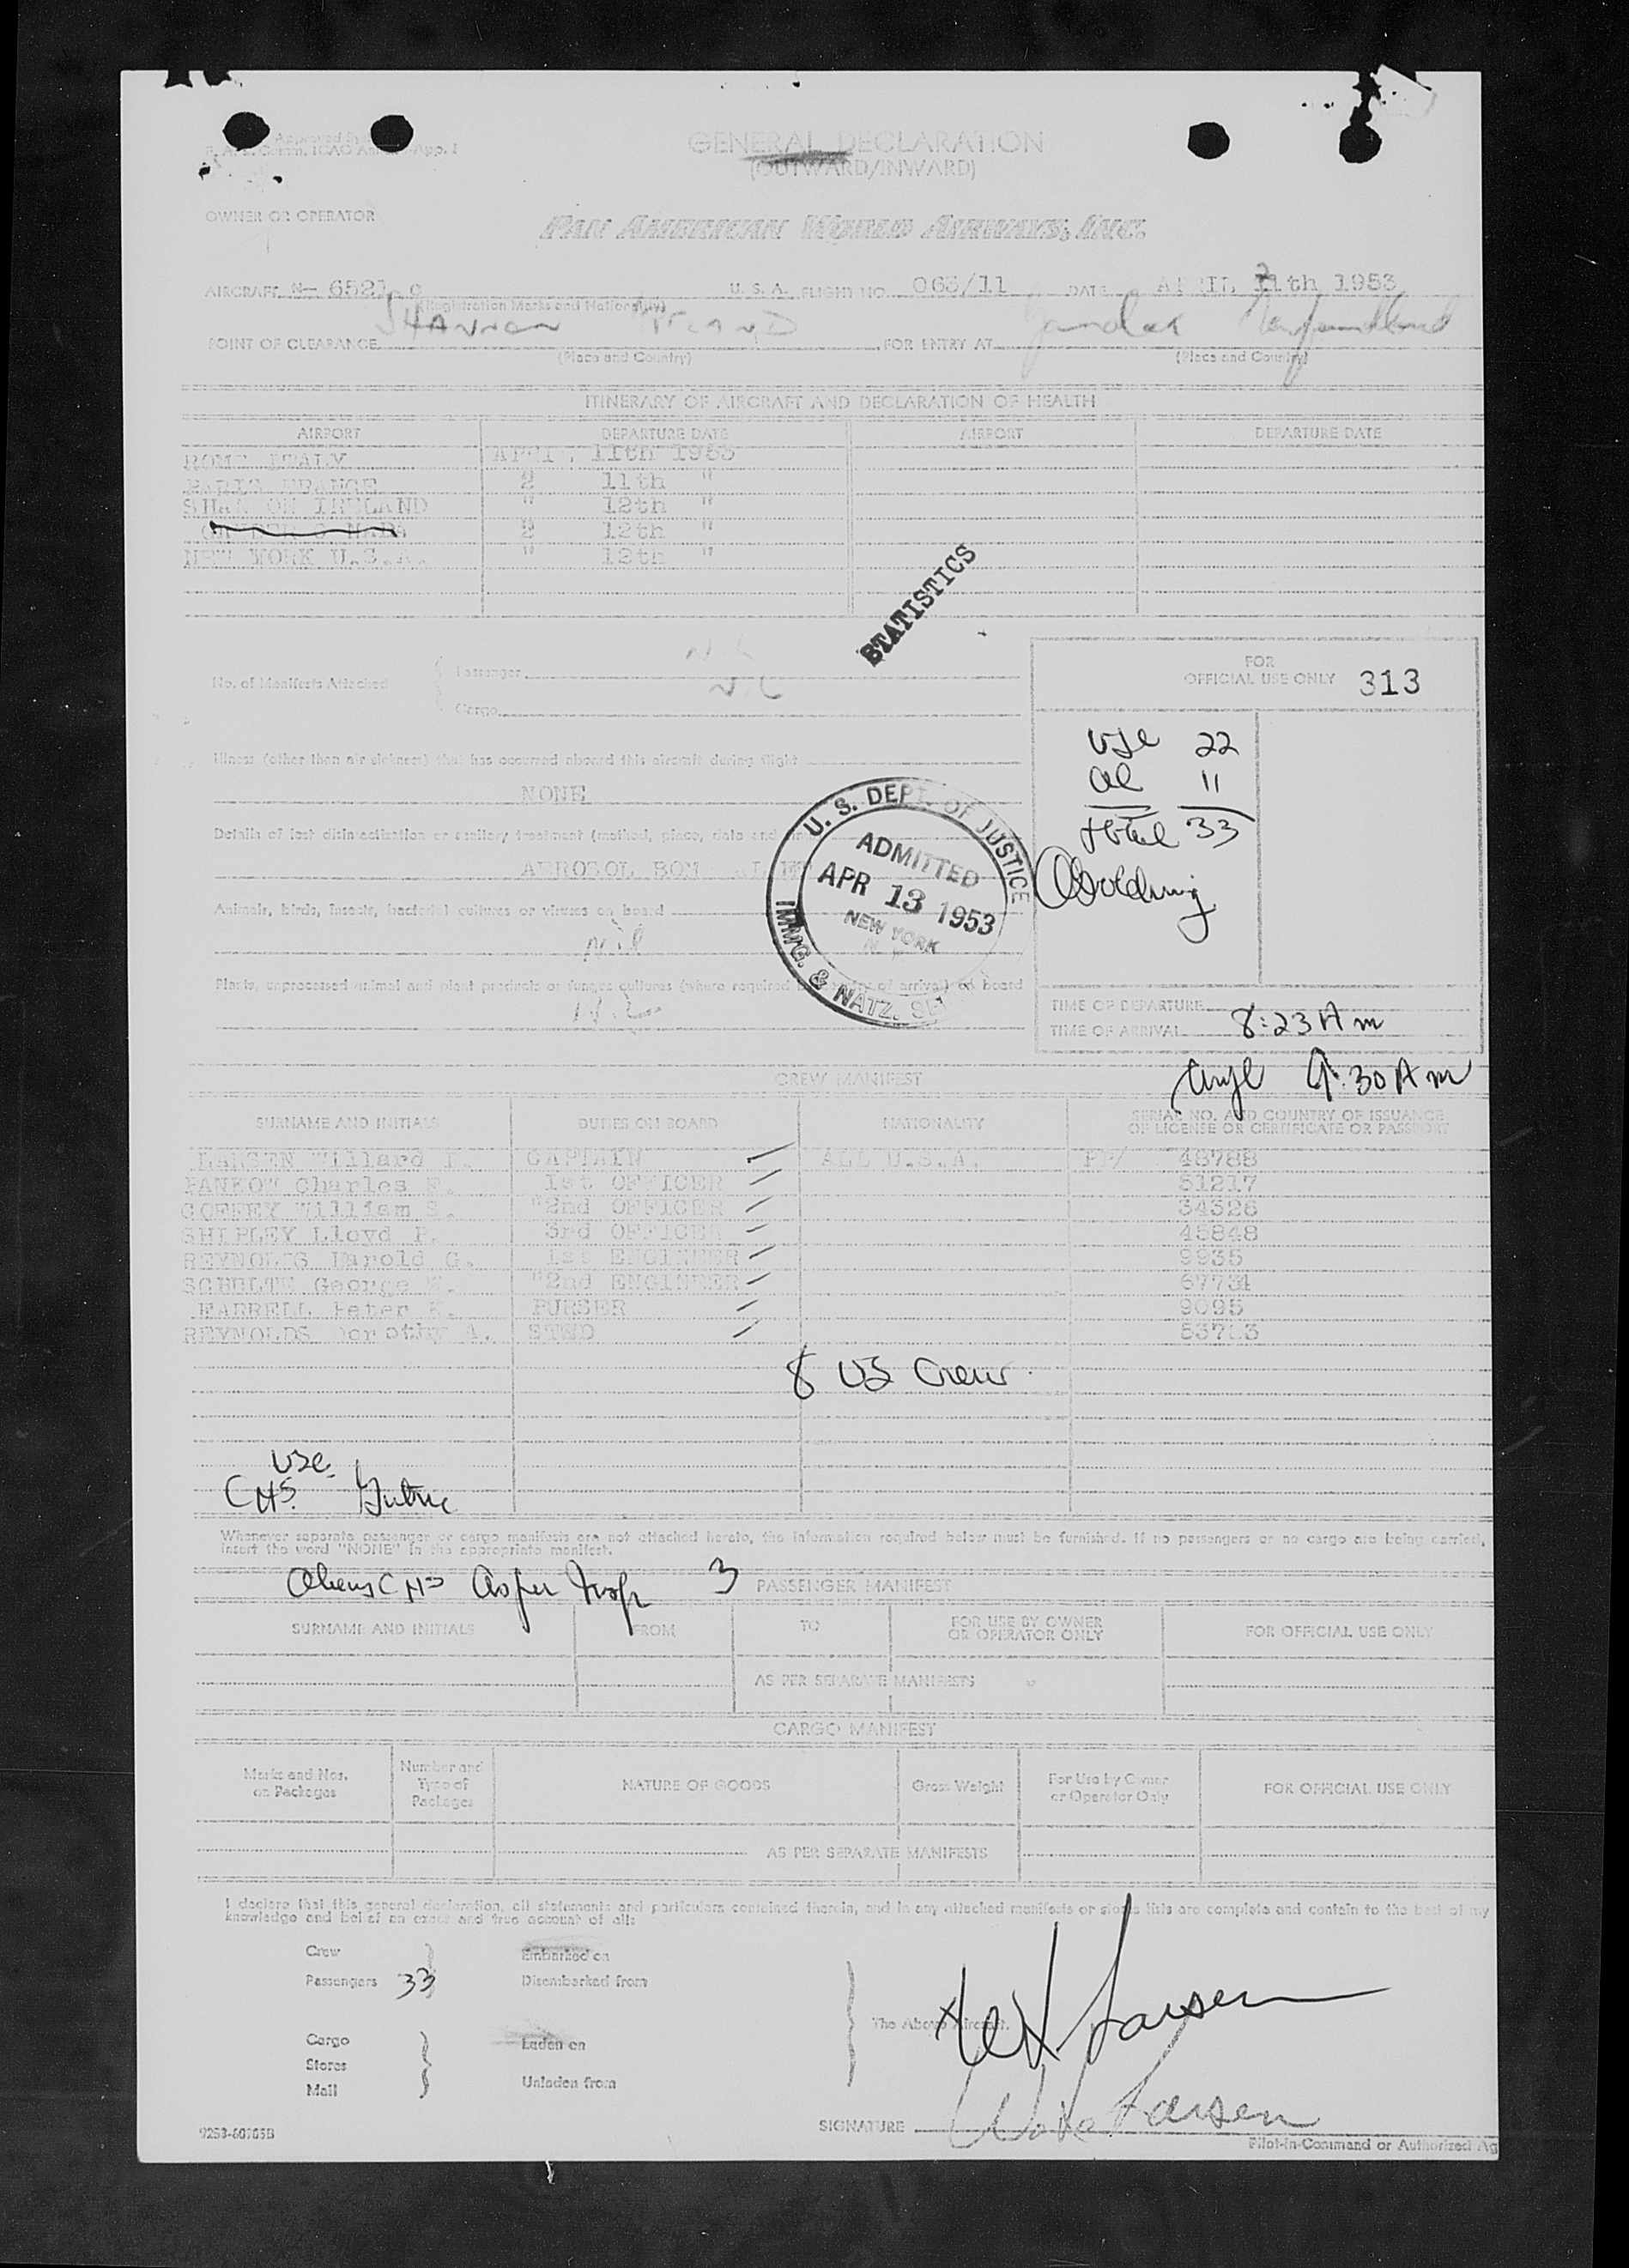 Approved by
App. 1
GENERAL DECLARATION
(OUTWARD/INWARD)
OWNER OR OPERATOR
PAN AMERICAN WORLD AIRWAYS, INC.
AIRCRAFT N- 6521 C U. S. A. FLIGHT NO. 063/11 DATE APRIL 11th 1953
(Registration Marks and Nationality)
POINT OF CLEARANCE SHANNON IRELAND FOR ENTRY AT Gander Newfoundland
(Place and Country) (Place and Country)
ITINERARY OF AIRCRAFT AND DECLARATION OF HEALTH
AIRPORT DEPARTURE DATE AIRPORT DEPARTURE DATE
ROME ITALY APRIL 11th 1953
PARIS FRANCE 2 11th "
SHANNON IRELAND " 12th "
2 12th "
NEW YORK U.S.A. " 12th "
STATISTICS
No. of Manifests Attached
Passenger NIL
Cargo NIL
FOR
OFFICIAL USE ONLY 313
USC 22
al 11
total 33
Illness (other than air sickness) that has occurred aboard this aircraft during flight
NONE
Details of last disinsectisation or sanitary treatment (method, place, date and
AEROSOL BOM
Animals, birds, insects, bacterial cultures or viruses on board
Nil
Plants, unprocessed animal and plant products or fungus cultures (where required of arrival) on board
NIL
U. S. DEPT. OF JUSTICE
ADMITTED
APR 13 1953
NEW YORK
IMMG. & NATZ. SE
TIME OF DEPARTURE
TIME OF ARRIVAL 8:23 A m
9:30 A m
CREW MANIFEST
SURNAME AND INITIALS DUTIES ON BOARD NATIONALITY SERIAL NO. AND COUNTRY OF ISSUANCE
OF LICENSE OR CERTIFICATE OR PASSPORT
LARSEN Willard CAPTAIN ALL U.S.A. PP/ 48788
PANKOW Charles 1st OFFICER 51217
COFFEY William 2nd OFFICER 34526
SHIPLEY Lloyd P. 3rd OFFICER 45848
REYNOLDS Harold G. 1st ENGINEER 9935
SCHULTE George "2nd ENGINEER 67734
FARRELL Peter PURSER 9095
REYNOLDS Dorothy A. STWD
8 US Crew
USC
CHS.
Whenever separate passenger or cargo manifests are not attached hereto, the information required below must be furnished. If no passengers or no cargo are being carried,
insert the word "NONE" in the appropriate manifest.
Aliens CHS 3 PASSENGER MANIFEST
SURNAME AND INITIALS FROM TO FOR USE BY OWNER
OR OPERATOR ONLY FOR OFFICIAL USE ONLY
AS PER SEPARATE MANIFESTS
CARGO MANIFEST
Marks and Nos.
on Packages Number and
Type of
Packages NATURE OF GOODS Gross Weight For Use by Owner
or Operator Only FOR OFFICIAL USE ONLY
AS PER SEPARATE MANIFESTS
I declare that this general declaration, all statements and particulars contained therein, and in any attached manifests or stores lists are complete and contain to the best of my
knowledge and belief an exact and true account of all:
Crew Embarked on
Passengers 33 Disembarked from
The Above Aircraft.
Cargo Laden on
Stores
Mail Unladen from
SIGNATURE Larsen
Pilot-in-Command or Authorized Ag
9253-60165B